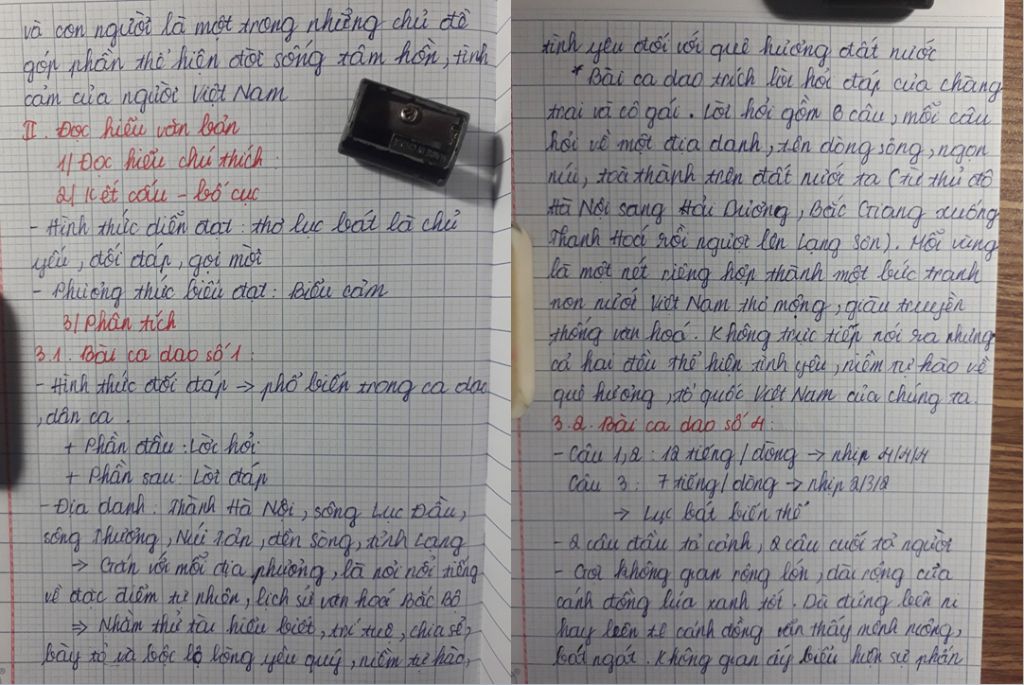 và con người là một trong những chủ đề
góp phần thể hiện đời sống tâm hồn, tình
cảm của người Việt Nam
II. Đọc hiểu văn bản
1/ Đọc hiểu chú thích
2/ Kết cấu - bố cục
- Hình thức diễn đạt: thơ lục bát là chủ
yếu, đối đáp, gọi mời
- Phương thức biểu đạt: Biểu cảm
3/ Phân tích
3.1. Bài ca dao số 1:
- Hình thức đối đáp → phổ biến trong ca dao
, dân ca.
+ Phần đầu: Lời hỏi
+ Phần sau: Lời đáp
- Địa danh: Thành Hà Nội, sông Lục Đầu,
sông Thương, Núi Tản, đền Sòng, tỉnh Lạng
→ Gắn với mỗi địa phương, là nơi nổi tiếng
về đặc điểm tự nhiên, lịch sử văn hoá Bắc Bộ
⇒ Nhằm thử tài hiểu biết, trí tuệ, chia sẻ,
bày tỏ và bộc lộ lòng yêu quý, niềm tự hào,
tình yêu đối với quê hương đất nước
* Bài ca dao trích lời hỏi đáp của chàng
trai và cô gái. Lời hỏi gồm 6 câu, mỗi câu
hỏi về một địa danh, tên dòng sông, ngọn
núi, toà thành trên đất nước ta (từ thủ đô
Hà Nội sang Hải Dương, Bắc Giang xuống
Thanh Hoá rồi ngược lên Lạng Sơn). Mỗi vùng
là một nét riêng hợp thành một bức tranh
non nước Việt Nam thơ mộng, giàu truyền
thống văn hoá. Không trực tiếp nói ra nhưng
cả hai đều thể hiện tình yêu, niềm tự hào về
quê hương, tổ quốc Việt Nam của chúng ta.
3.2. Bài ca dao số 4:
- Câu 1,2: 12 tiếng/dòng → nhịp 4/4/4
Câu 3: 7 tiếng/dòng → nhịp 2/3/2
→ Lục bát biến thể
- 2 câu đầu tả cảnh, 2 câu cuối tả người
- Gợi không gian rộng lớn, dài rộng của
cánh đồng lúa xanh tốt. Dù đứng bên ni
hay bên tê cánh đồng vẫn thấy mênh mông,
bát ngát. Không gian ấy biểu hiện sự phấn